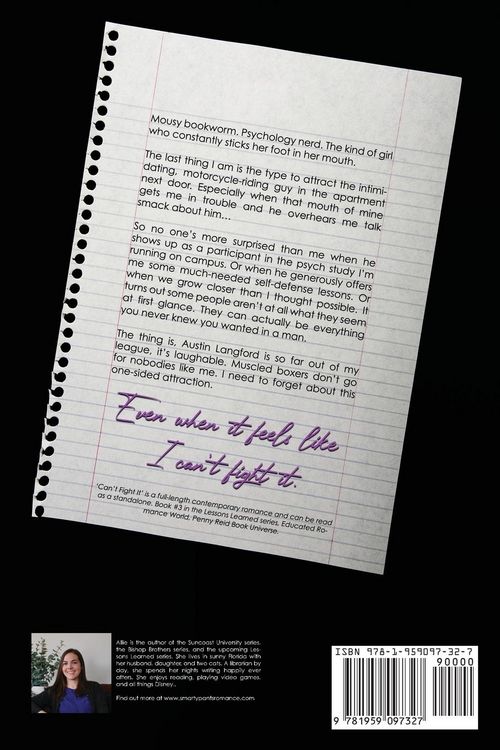 Mousy bookworm. Psychology nerd. The kind of girl
who constantly sticks her foot in her mouth.
The last thing I am is the type to attract the intimi-
dating, motorcycle-riding guy in the apartment
next door. Especially when that mouth of mine
gets me in trouble and he overhears me talk
smack about him...
So no one's more surprised than me when he
shows up as a participant in the psych study I'm
running on campus. Or when he generously offers
me some much-needed self-defense lessons. Or
when we grow closer than I thought possible. It
turns out some people aren't at all what they seem
at first glance. They can actually be everything
you never knew you wanted in a man.
The thing is, Austin Langford is so far out of my
league, it's laughable. Muscled boxers don't go
for nobodies like me. I need to forget about this
one-sided attraction.
Even when it feels like
I can't fight it.
'Can't Fight It' is a full-length contemporary romance and can be read
as a standalone. Book #3 in the Lessons Learned series, Educated Ro-
mance World, Penny Reid Book Universe.
Allie is the author of the Suncoast University series,
the Bishop Brothers series, and the upcoming Les-
sons Learned series. She lives in sunny Florida with
her husband, daughter, and two cats. A librarian by
day, she spends her nights writing happily ever
afters. She enjoys reading, playing video games,
and all things Disney.
Find out more at www.smartypantsromance.com.
ISBN 978-1-959097-32-7
90000
9 781959 097327